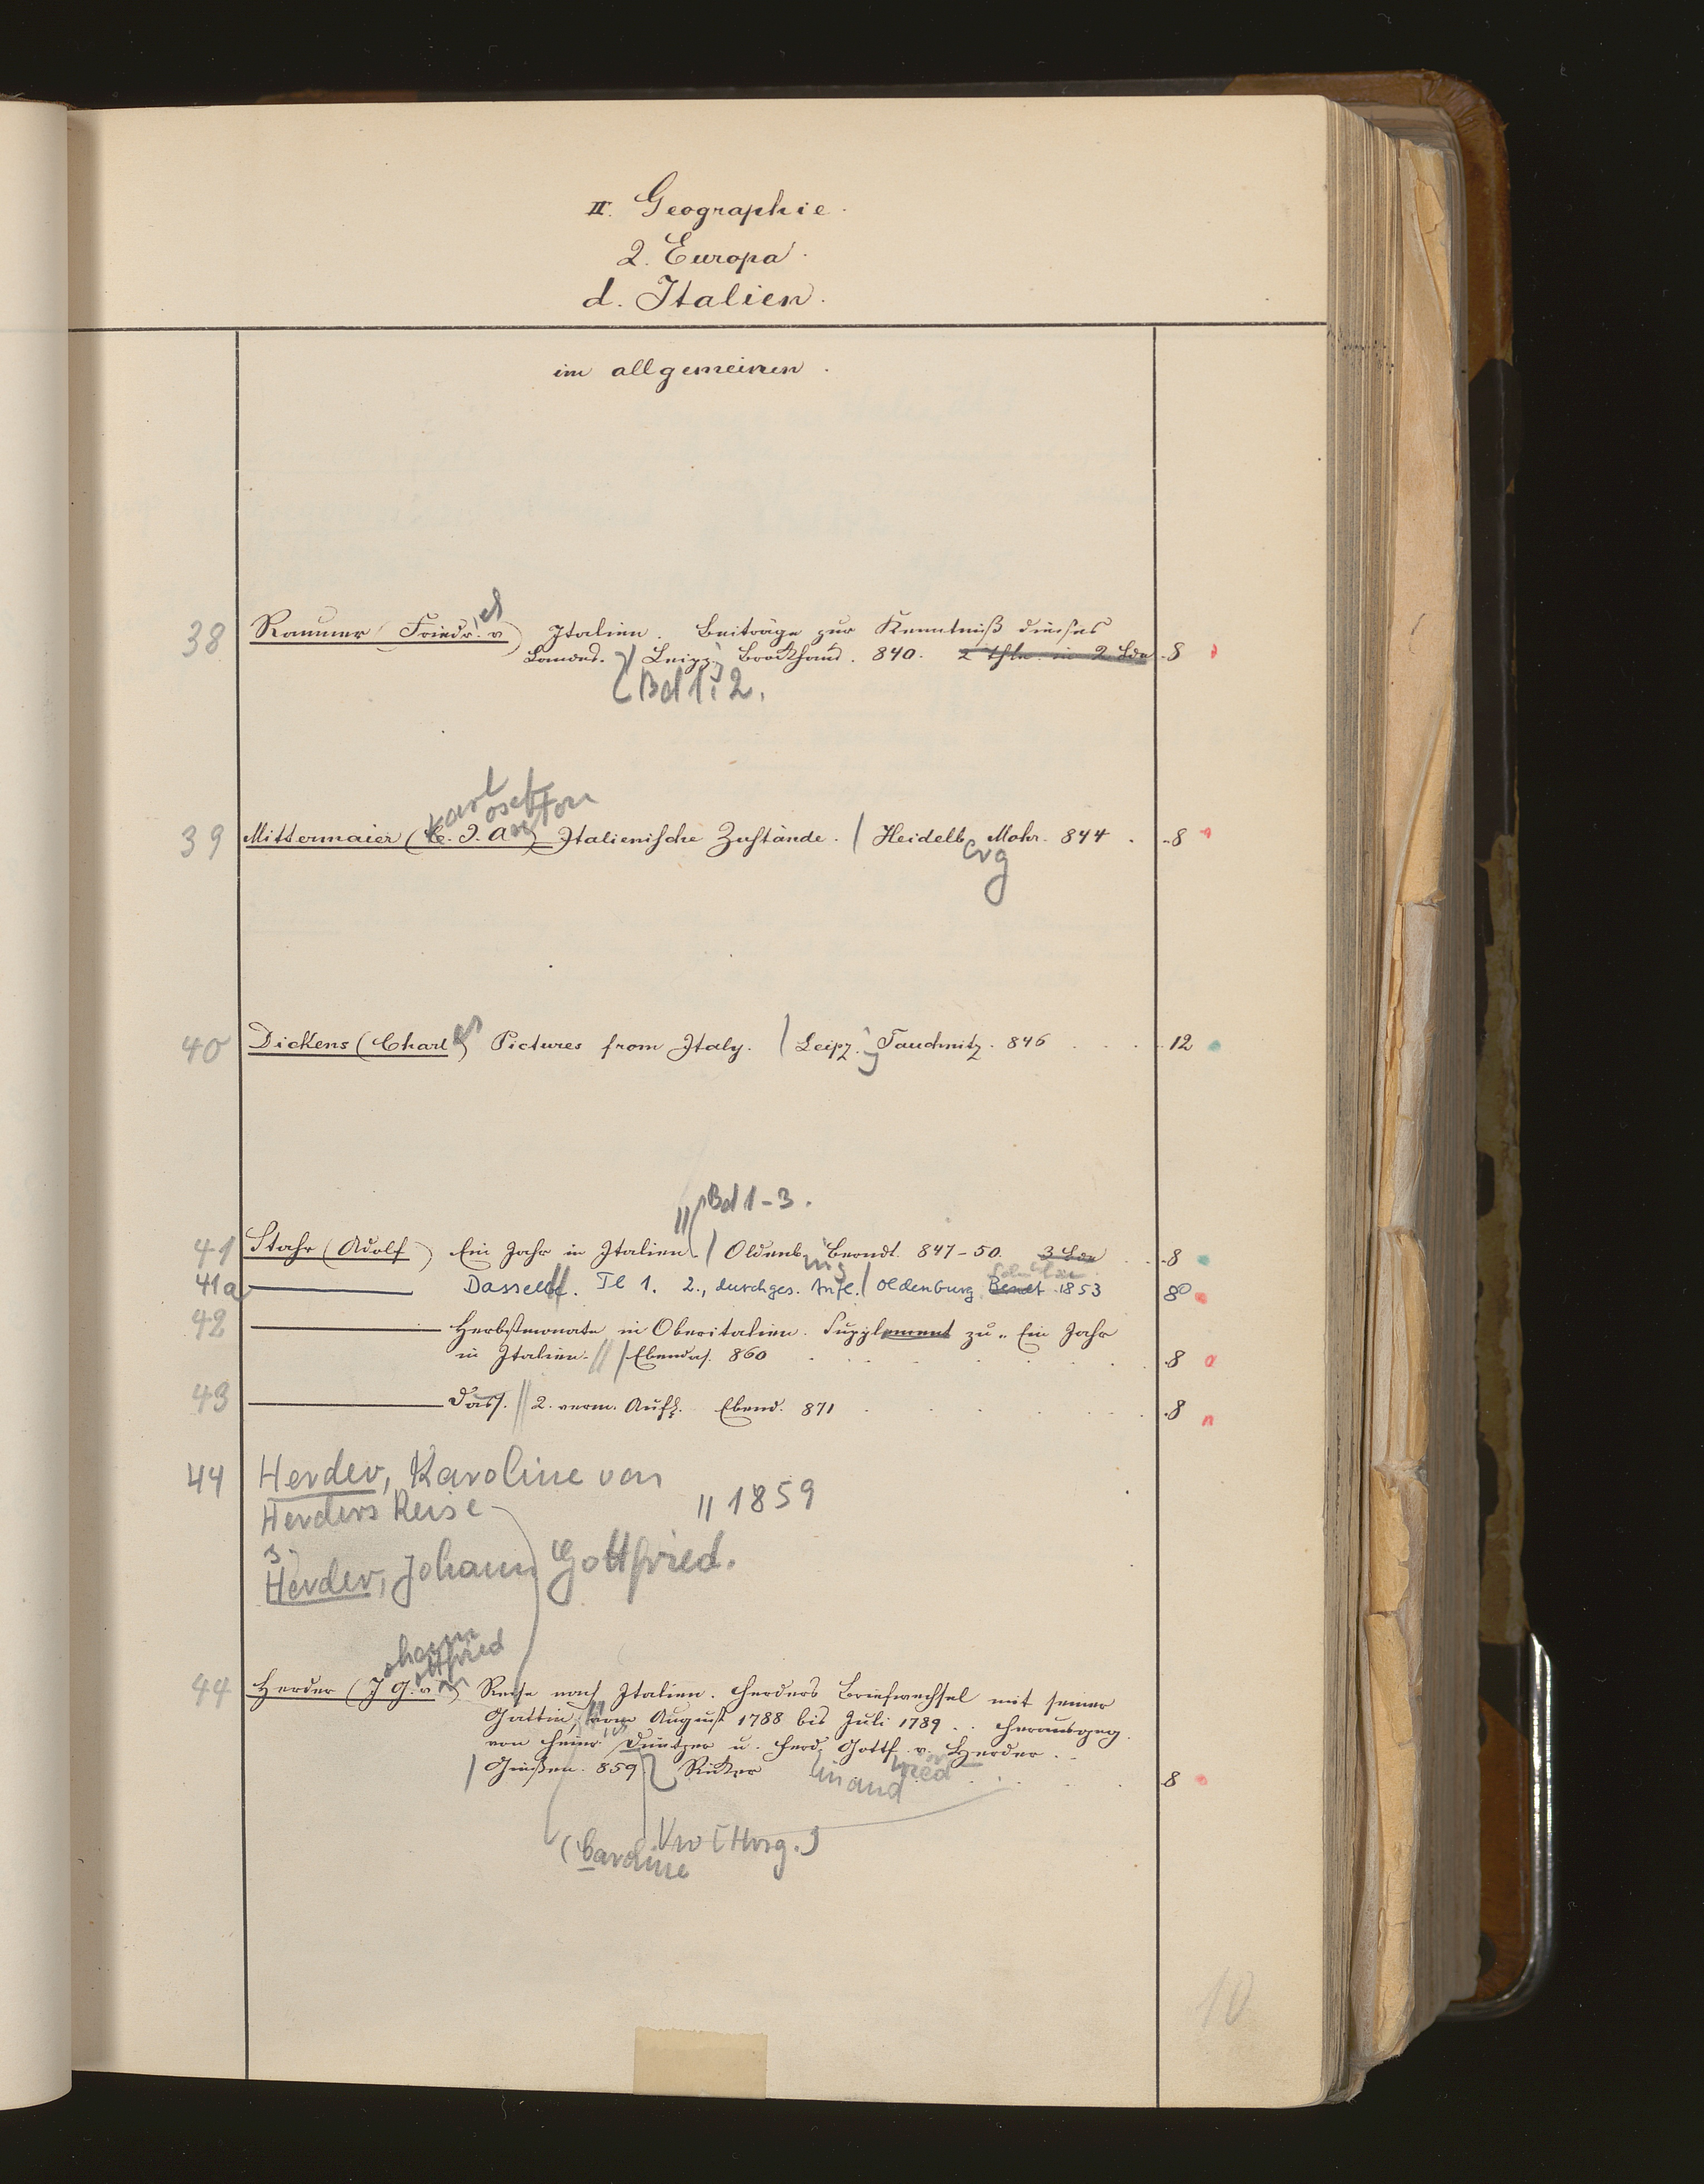 II. Geographie.
2. Europa.
d. Italien.
im allgemeinen.
38 Raumer (Friedr. v) Italien. Beiträge zur Kenntniß dieses
ich
Landes. Leipz. Brockhaus. 840. 2 Thle. in 2 Bde 8
(Bd 1. 2.
Karl
osef
Anton
39 Mittermaier (C. J. A) Italienische Zustände. / Heidelb. Mohr. 844 . 8
erg
40 Dickens (Charles) Pictures from Italy. / Leipz. Tauchnitz. 846 . . . 12
(Bd 1-3.
41 Stahr (Adolf) Ein Jahr in Italien. / Oldenb. Berndt. 847-50. 3 Bde . . 8
urg
41a ——— Dasselbe. Tl 1. 2., durchges. Aufl. / Oldenburg 1853 8°
42 ——— Herbstmonate in Oberitalien. Supplement zu „Ein Jahr
in Italien. // / Ebendas. 860 . . . 8
43 ——— Dass. // 2. verm. Aufl. Ebend. 871 . . . 8
44 Herder, Karoline von
Herders Reise // 1859
s.
Herder, Johann Gottfried.
ohann
ottfried
44 Herder (J G. v.) Reise nach Italien. Herders Briefwechsel mit seiner
Gattin, vom August 1788 bis Juli 1789 . . Herausgeg.
von Heinr. Düntzer u. Ferd. Gottf. v. Herder . .
/ Gießen. 859. Ricker 8
inand
fried
Vw [Hrsg.]
(Caroline
10